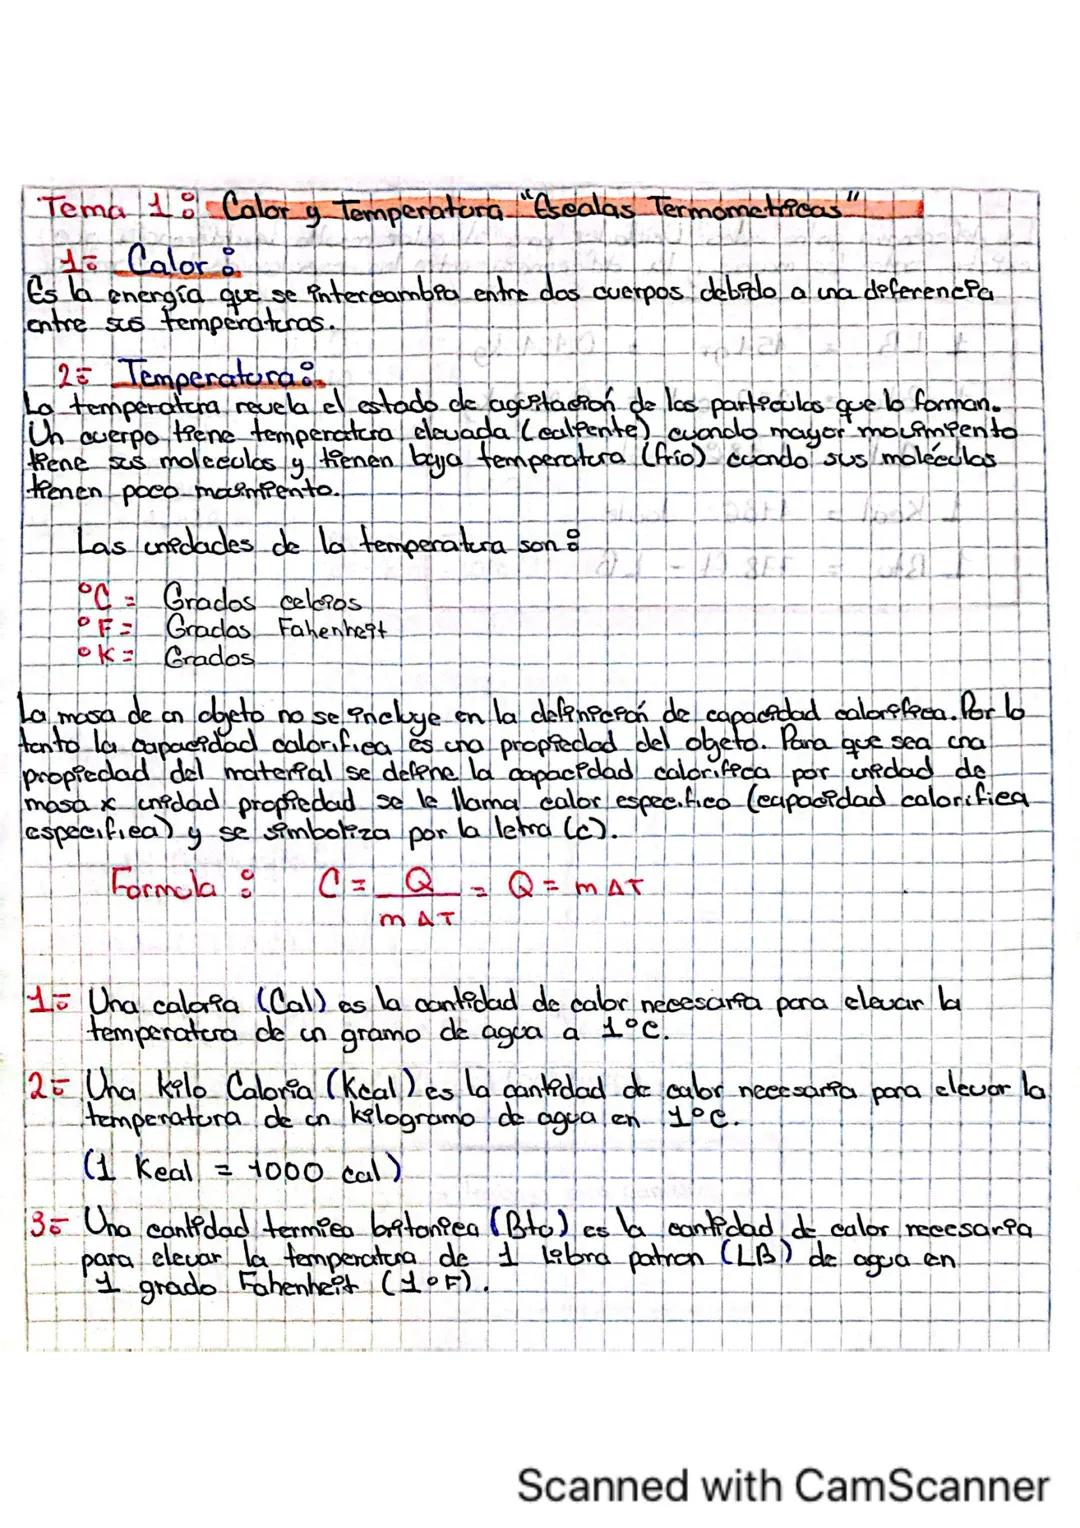 Tema 1: Calor y Temperatura "Escalas Termometricas"
1- Calor:
Es la energía que se intercambia entre dos cuerpos debido a una diferencia
entre sus temperaturas.
2- Temperatura:
La temperatura revela el estado de agitación de las partículas que lo forman.
Un cuerpo tiene temperatura elevada (caliente) cuando mayor movimiento
tiene sus moleculas y tienen baja temperatura (frío) cuando sus moléculas
tienen poco movimiento.
Las unidades de la temperatura son:
°C = Grados celcios
°F = Grados Fahenheit
°K = Grados
La masa de un objeto no se incluye en la definición de capacidad calorifica. Por lo
tanto la capacidad calorifica es una propiedad del objeto. Para que sea una
propiedad del material se define la capacidad calorifica por unidad de
masa x unidad propiedad se le llama calor especifico (capacidad calorifica
especifica) y se simboliza por la letra (c).
Formula: C = Q = Q = m ΔT
m ΔT
1- Una caloria (Cal) es la cantidad de calor necesaria para elevar la
temperatura de un gramo de agua a 1°C.
2- Una Kilo Caloria (Kcal) es la cantidad de calor necesaria para elevar la
temperatura de un kilogramo de agua en 1°C.
(1 Kcal = 1000 cal)
3- Una cantidad termica britonica (Btu) es la cantidad de calor necesaria
para elevar la temperatura de 1 libra patron (LB) de agua en
1 grado Fahenheit (1°F).
Scanned with CamScanner